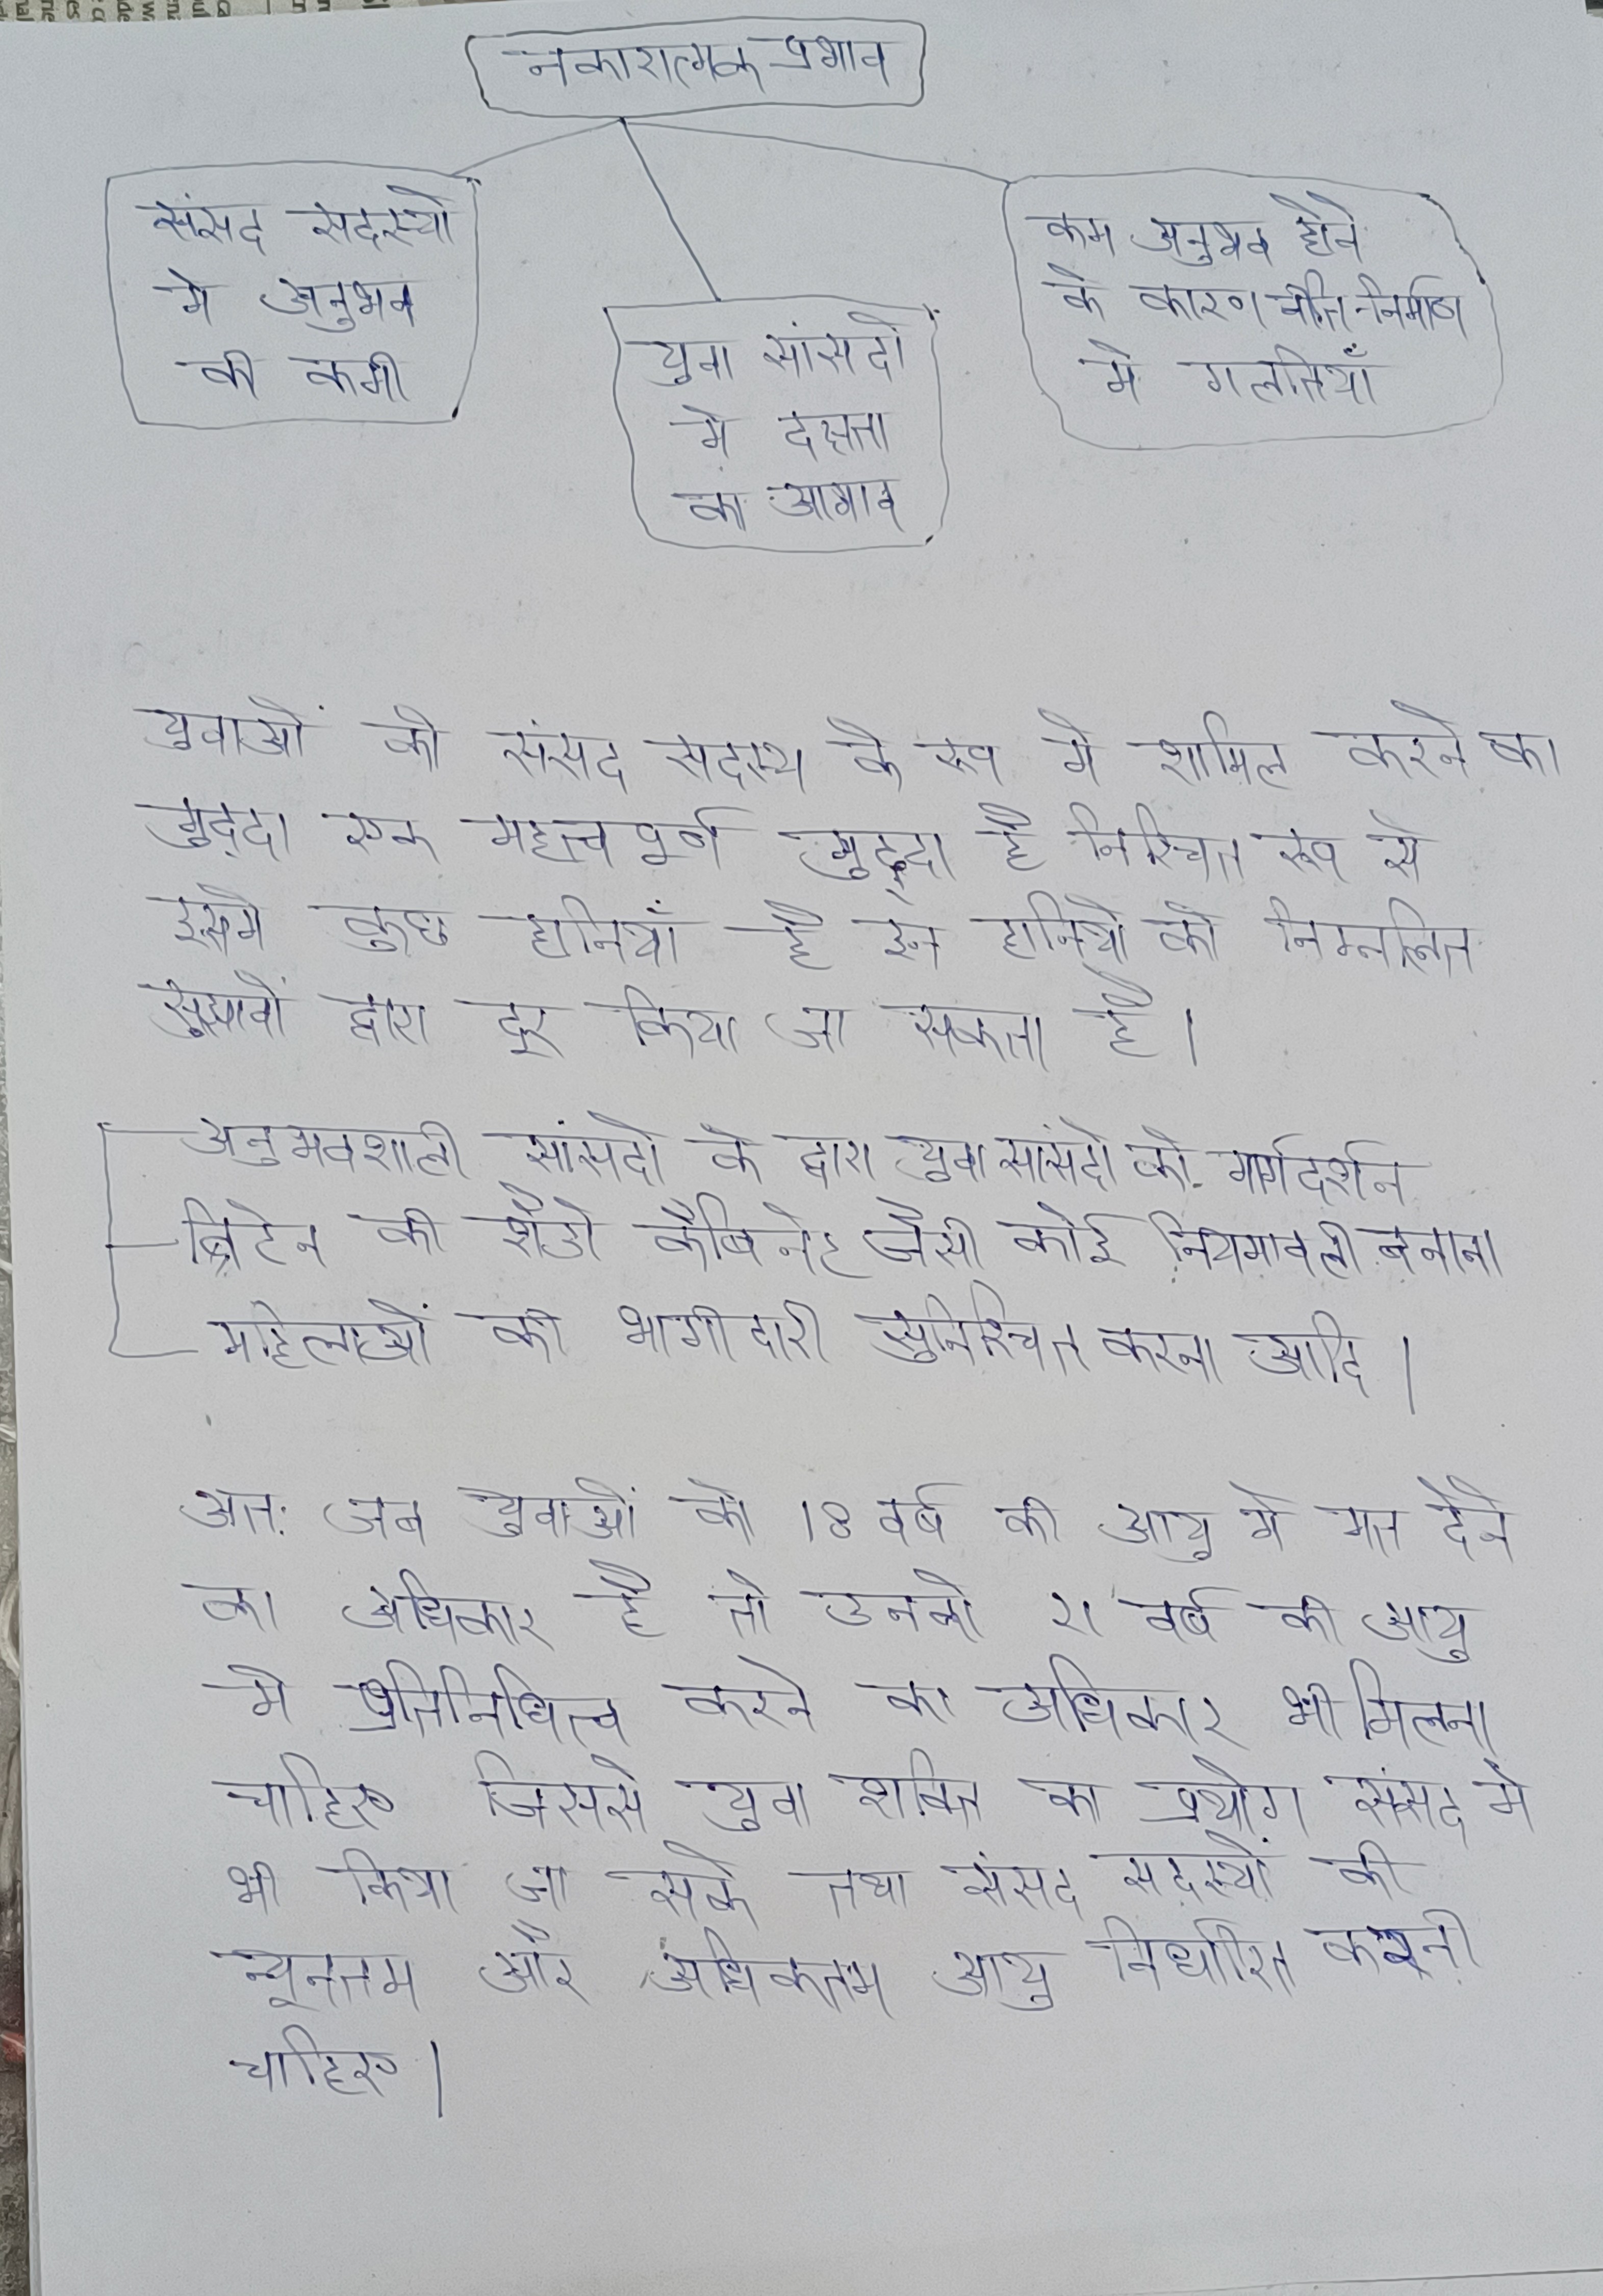 नकारात्मक प्रभाव
संसद सदस्यो
मे अनुभव
की कमी
युवा सांसदों
मे दक्षता
का आभाव
कम अनुभव होने
के कारण नीति-निर्माण
मे गलतियाँ
युवाओं को संसद सदस्य के रूप मे शामिल करने का
मुद्दा एक महत्त्वपूर्ण मुद्दा है निश्चित रूप से
इसमे कुछ हानियाँ है इन हानियो को निम्नलित
सुझावों द्वारा दूर किया जा सकता है।
अनुभवशाली सांसदो के द्वारा युवा सांसदो को मार्गदर्शन
ब्रिटेन की शैडो कैबिनेट जैसी कोई नियमावली बनाना
महिलाओं की भागीदारी सुनिश्चित करना आदि।
अतः जब युवाओं को 18 वर्ष की आयु मे मत देने
का अधिकार है तो उनको 21 वर्ष की आयु
मे प्रतिनिधित्व करने का अधिकार भी मिलना
चाहिए जिससे युवा शक्ति का प्रयोग संसद मे
भी किया जा सके तथा संसद सदस्यों की
न्यूनतम और अधिकतम आयु निर्धारित करनी
चाहिए।